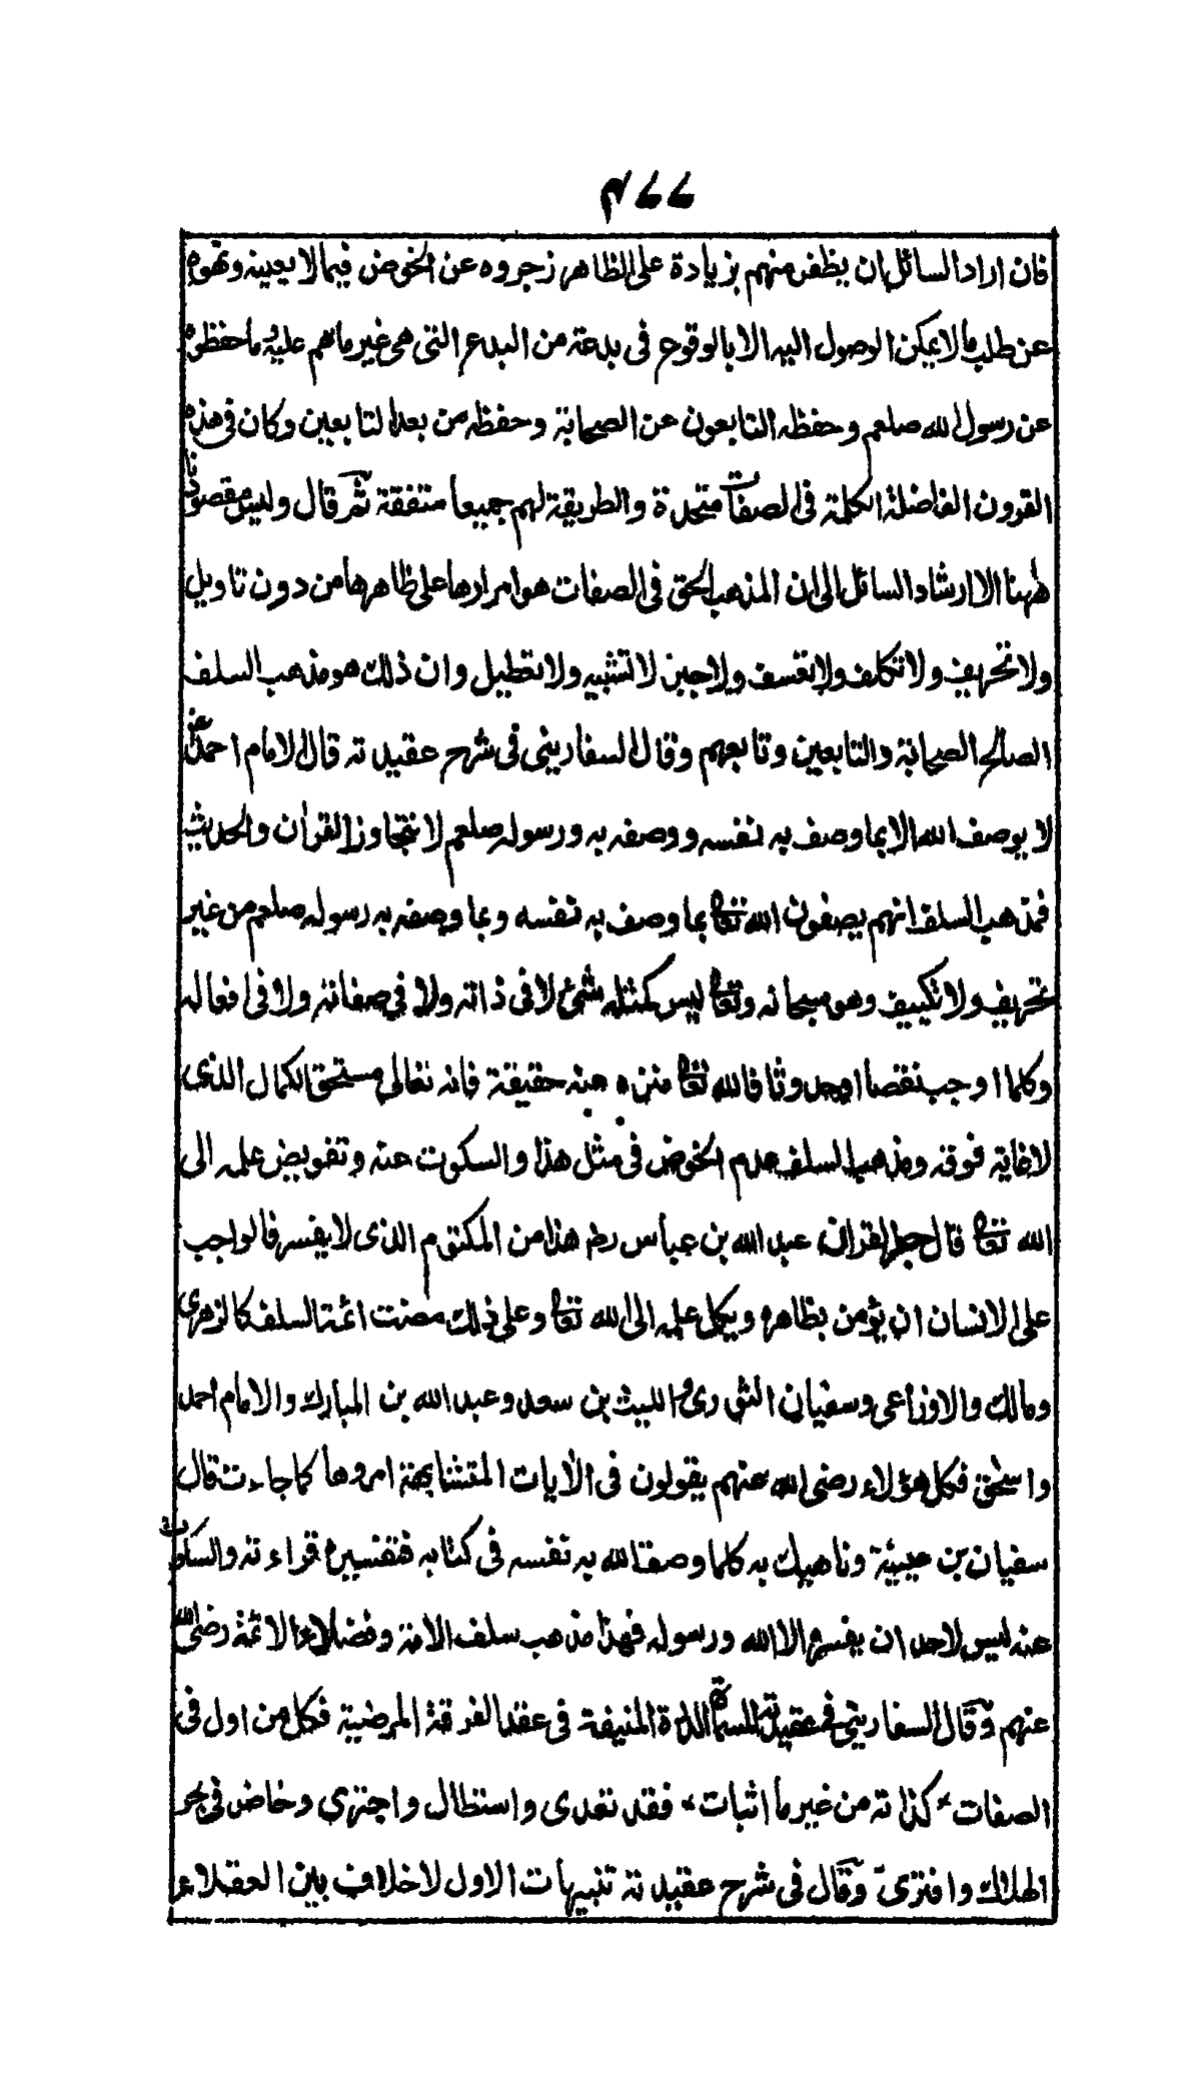 ٤٧٧
فان اراد السائل ان يظفر منهم بزيادة على الظاهر زجروه عن الخوض فيما لا يعينه ونهوه
عن طلب ما لا يمكن الوصول اليه الا بالوقوع فى بدعة من البدع التى هى غير ما هم عليه وما حفظوه
عن رسول الله صلعم وحفظه التابعون عن الصحابة وحفظه من بعد التابعين وكان فى هذه
القرون الفاضلة الكلمة فى الصفات متحدة والطريقة لهم جميعا متفقة ثم قال وليس مقصودنا
ههنا الا ارشاد السائل الى ان المذهب الحق فى الصفات هو امرارها على ظاهرها من دون تاويل
ولا تحريف ولا تكلف ولا تعسف ولا جبر ولا تشبيه ولا تعطيل وان ذلك هو مذهب السلف
الصالح الصحابة والتابعين وتابعهم وقال السفارينى فى شرح عقيدته قال الامام احمد رض
لا يوصف الله الا بما وصف به نفسه ووصفه به ورسوله صلعم لا نتجاوز القرآن والحديث
فمذهب السلف انهم يصفون الله تعالى بما وصف به نفسه وبما وصفه به رسوله صلعم من غير
تحريف ولا تكييف وهو سبحانه وتعالى ليس كمثله شئ لا فى ذاته ولا فى صفاته ولا فى افعاله
وكلما اوجب نقصا او حدوثا فالله تعالى منزه عنه حقيقة فانه تعالى مستحق الكمال الذى
لا غاية فوقه ومذهب السلف عدم الخوض فى مثل هذا والسكوت عنه وتفويض علمه الى
الله تعالى قال حبر القرآن عبد الله بن عباس رض هذا من المكتوم الذى لا يفسر فالواجب
على الانسان ان يؤمن بظاهره ويكل علمه الى الله تعالى وعلى ذلك مضت ائمة السلف كالزهرى
ومالك والاوزاعى وسفيان الثورى والليث بن سعد وعبد الله بن المبارك والامام احمد
واسحق فكل هؤلاء رضى الله عنهم يقولون فى الآيات المتشابهة امروها كما جاءت قال
سفيان بن عيينة وناهيك به كلما وصف الله به نفسه فى كتابه فتفسيره قراءته والسكوت
عنه ليس لاحد ان يفسره الا الله ورسوله فهذا مذهب سلف الامة وفضلاء الائمة رضى الله
عنهم وقال السفارينى فى عقيدته المسماة الدرة المنيفة فى عقد الفرقة المرضية فكل من اول فى
الصفات * كذاته من غير ما اثبات * فقد تعدى واستطال واجترى وخاض فى بحر
الهلاك وافترى وقال فى شرح عقيدته تنبيهات الاول لا خلاف بين العقلاء